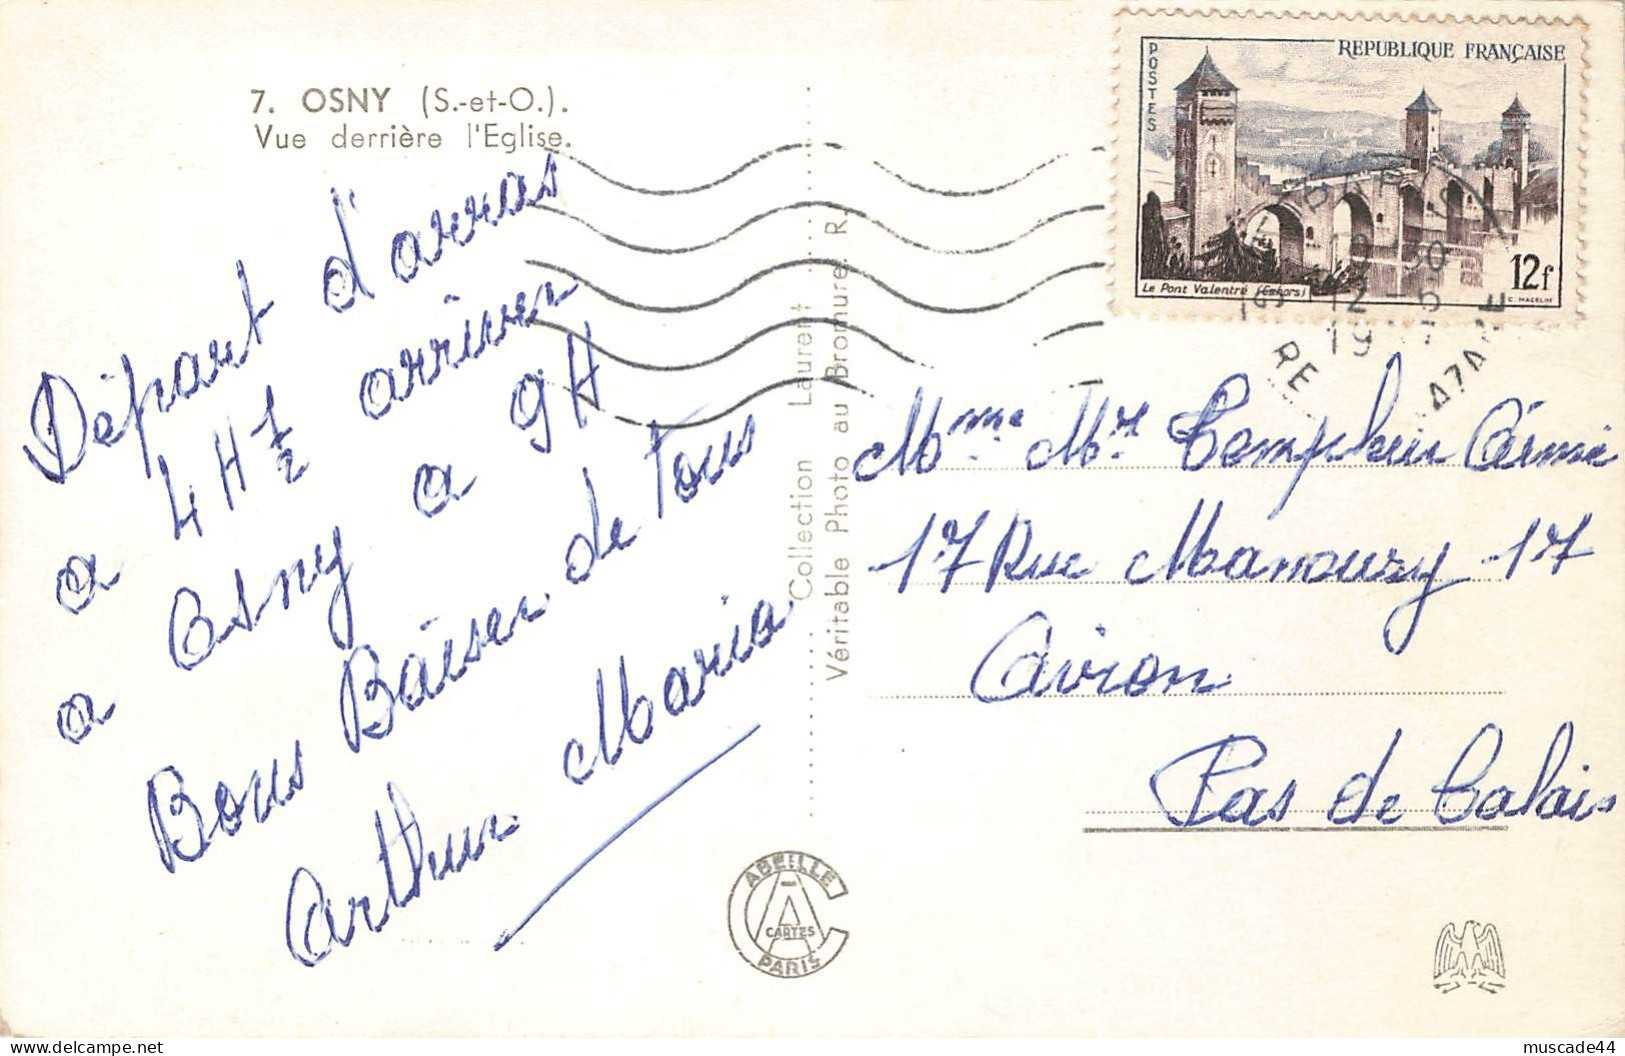 7. OSNY (S.-et-O.).
Vue derrière l'Eglise.
Départ d'arras
a 4H ½ arriver
a Osny a 9H
Bons Baiser de tous
Arthur Maria
Collection Laurent
Véritable Photo au Bromure. R.
POSTES
REPUBLIQUE FRANÇAISE
Le Pont Valentré (Cahors)
12f
12 - 6
19
Mme Mr Templeur
17 Rue Manoury 17
Avion
Pas de Calais
ABEILLE
CARTES
PARIS
muscade44